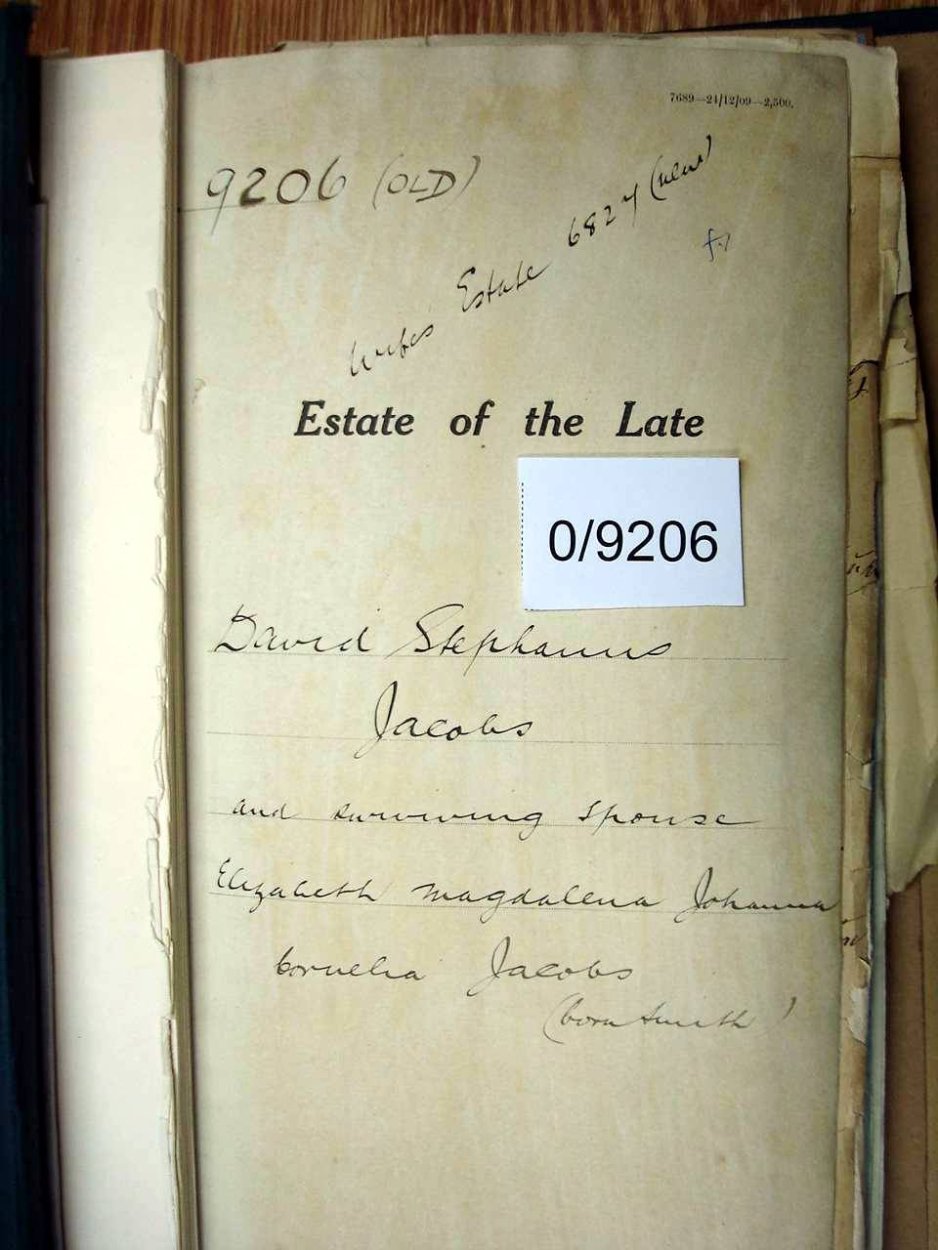 7689—21/12/09—2,500.
9206 (OLD)
Wifes Estate 6827 (new)
Estate of the Late
0/9206
David Stephanus
Jacobs
and surviving spouse
Elizabeth Magdalena Johanna
Cornelia Jacobs
(born Smith)